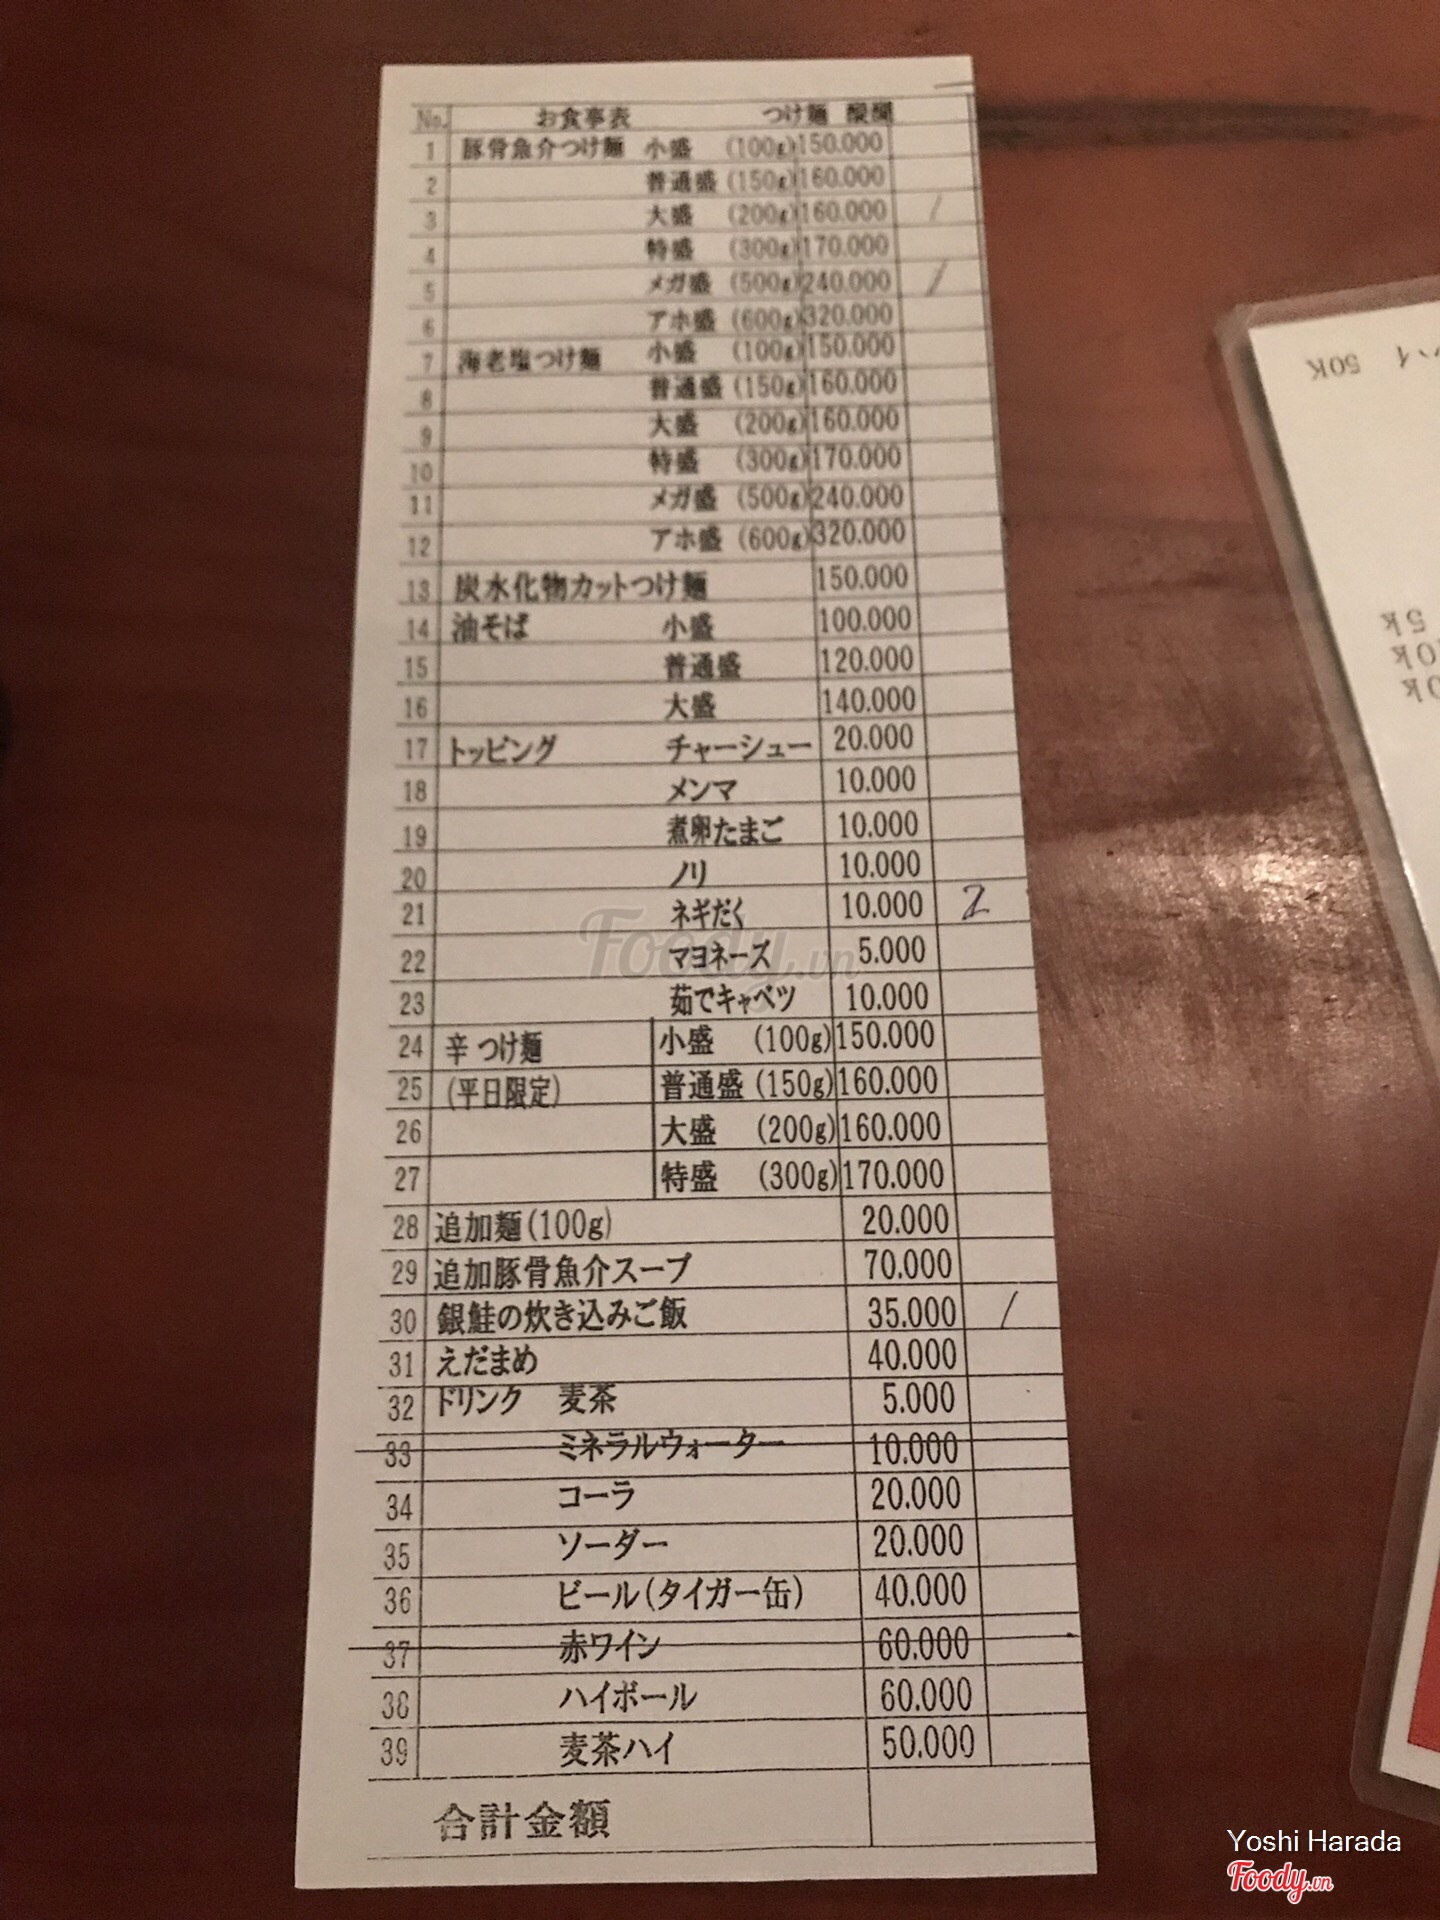 No. お食事表 つけ麺 醍醐
1 豚骨魚介つけ麺 小盛 (100g) 150.000
2 普通盛 (150g) 160.000
3 大盛 (200g) 160.000 /
4 特盛 (300g) 170.000
5 メガ盛 (500g) 240.000 /
6 アホ盛 (600g) 320.000
7 海老塩つけ麺 小盛 (100g) 150.000
8 普通盛 (150g) 160.000
9 大盛 (200g) 160.000
10 特盛 (300g) 170.000
11 メガ盛 (500g) 240.000
12 アホ盛 (600g) 320.000
13 炭水化物カットつけ麺 150.000
14 油そば 小盛 100.000
15 普通盛 120.000
16 大盛 140.000
17 トッピング チャーシュー 20.000
18 メンマ 10.000
19 煮卵たまご 10.000
20 ノリ 10.000
21 ネギだく 10.000 2
22 マヨネーズ 5.000
23 茹でキャベツ 10.000
24 辛つけ麺 小盛 (100g) 150.000
25 (平日限定) 普通盛 (150g) 160.000
26 大盛 (200g) 160.000
27 特盛 (300g) 170.000
28 追加麺(100g) 20.000
29 追加豚骨魚介スープ 70.000
30 銀鮭の炊き込みご飯 35.000 /
31 えだまめ 40.000
32 ドリンク 麦茶 5.000
33 ミネラルウォーター 10.000
34 コーラ 20.000
35 ソーダー 20.000
36 ビール(タイガー缶) 40.000
37 赤ワイン 60.000
38 ハイボール 60.000
39 麦茶ハイ 50.000
合計金額
ハイ 50K
5K
Foody.vn
Yoshi Harada
Foody.vn